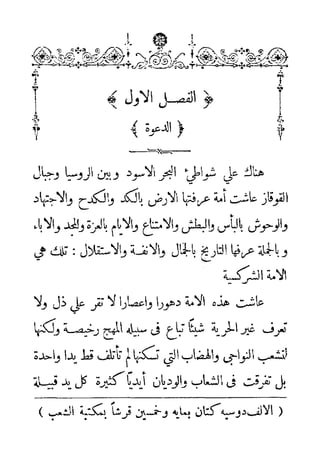 الفصل الاول
الدعوة
هناك علي شواطئ البحر الاسود وبين الروسيا وجبال
القوقاز عاشت أمة عرفتها الارض بالكد والكدح والاجتهاد
والوحوش بالبأس والبطش والامتناع والايام بالعزة والمجد والاباء
وبالجملة عرفها التاريخ بالجمال والانفة والاستقلال : تلك هي
الامة الشركسية
عاشت هذه الامة دهورا واعصارا لا تقر علي ذل ولا
تعرف غير الحرية شيئا تباع في سبيله المهج رخيصة ولكنها
لتشعب النواحي والهضاب التي تسكنها لم تأتلف قط يدا واحدة
بل تفرقت في الشعاب والوديان أيديا كثيرة كل يد قبيلة
( الالف دوسيه كتان بمايه وخمسين قرشا بمكتبة الشعب )